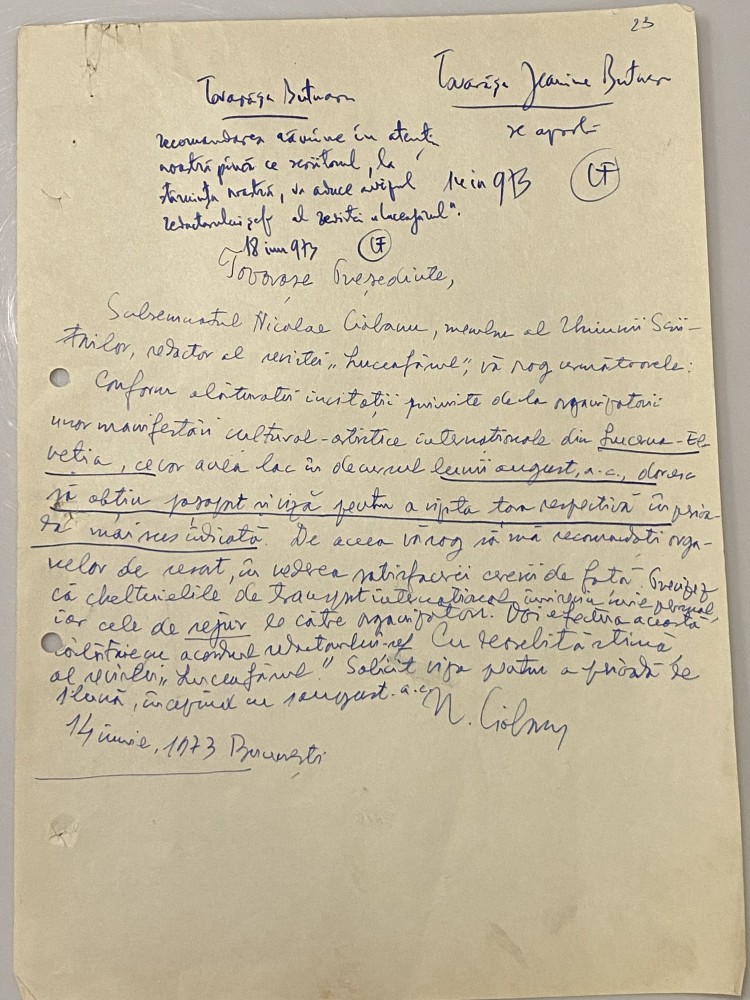 23
Tovarășa Butnaru
Tovarășa Jeanine Butnaru
recomandarea rămîne în atenți
noastră pînă ce scriitorul, la
stăruința noastră, va aduce avizul
redactorului șef al revistei „Luceafărul".
18 iun 973
se aprobă
14 iun 973
Tovarașe Președinte,
Subsemnatul Nicolae Ciobanu, membru al Uniunii Scrii-
torilor, redactor al revistei „Luceafărul", vă rog următoarele:
Conform alăturatei invitații primite de la organizatorii
unor manifestări cultural-artistice internaționale din Lucerna-El-
veția, ce vor avea loc în decursul lunii august, a.c., doresc
să obțin pașaport și viză pentru a vizita țara respectivă în perioa-
da mai sus indicată. De aceea vă rog să mă recomandati orga-
nelor de resort, în vederea satisfacerii cererii de față. Precizez
că cheltuielile de transport internațional mă privesc personal,
iar cele de sejur de către organizatori. Voi efectua această
călătorie cu acordul redactorului-șef Cu deosebită stimă,
al revistei „Luceafărul." Solicit viza pentru o perioadă de
1 lună, începînd cu 1 august. a.c.
N. Ciobanu
14 iunie, 1973 București